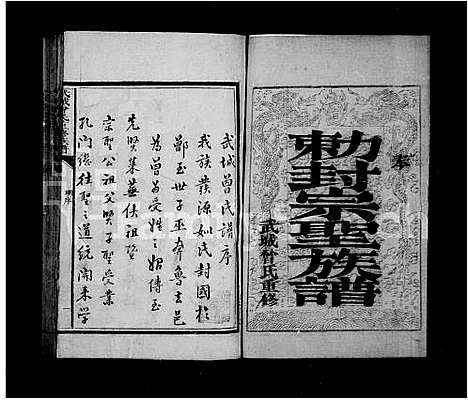 奉
勅封宗聖族譜
武城曾氏重修
武城曾氏譜序
我族發源姒氏封國於
鄫至世子巫奔魯去邑
為曾曾受姓之始傳至
先賢萊蕪侯祖暨
宗聖公祖父賢子聖受業
孔門繼往聖之道統開來學